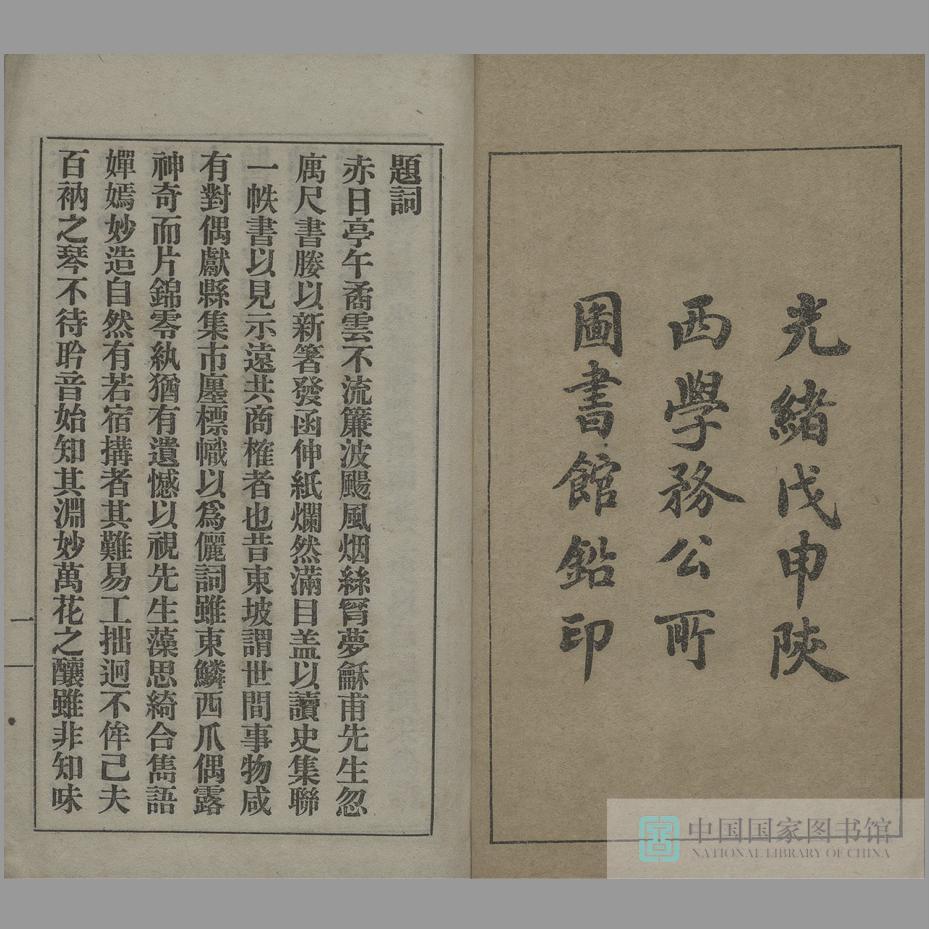 光緒戊申陝
西學務公所
圖書館鉛印
題詞
赤日亭午矞雲不流簾波颺風烟絲胥夢龢甫先生忽
寓尺書媵以新箸發函伸紙爛然滿目盖以讀史集聯
一帙書以見示遠共商榷者也昔東坡謂世間事物咸
有對偶獻縣集市廛標幟以爲儷詞雖東鱗西爪偶露
神奇而片錦零紈猶有遺憾以視先生藻思綺合雋語
嬋嫣妙造自然有若宿搆者其難易工拙迥不侔已夫
百衲之琴不待聆音始知其淵妙萬花之釀雖非知味
一
中国国家图书馆
NATIONAL LIBRARY OF CHINA